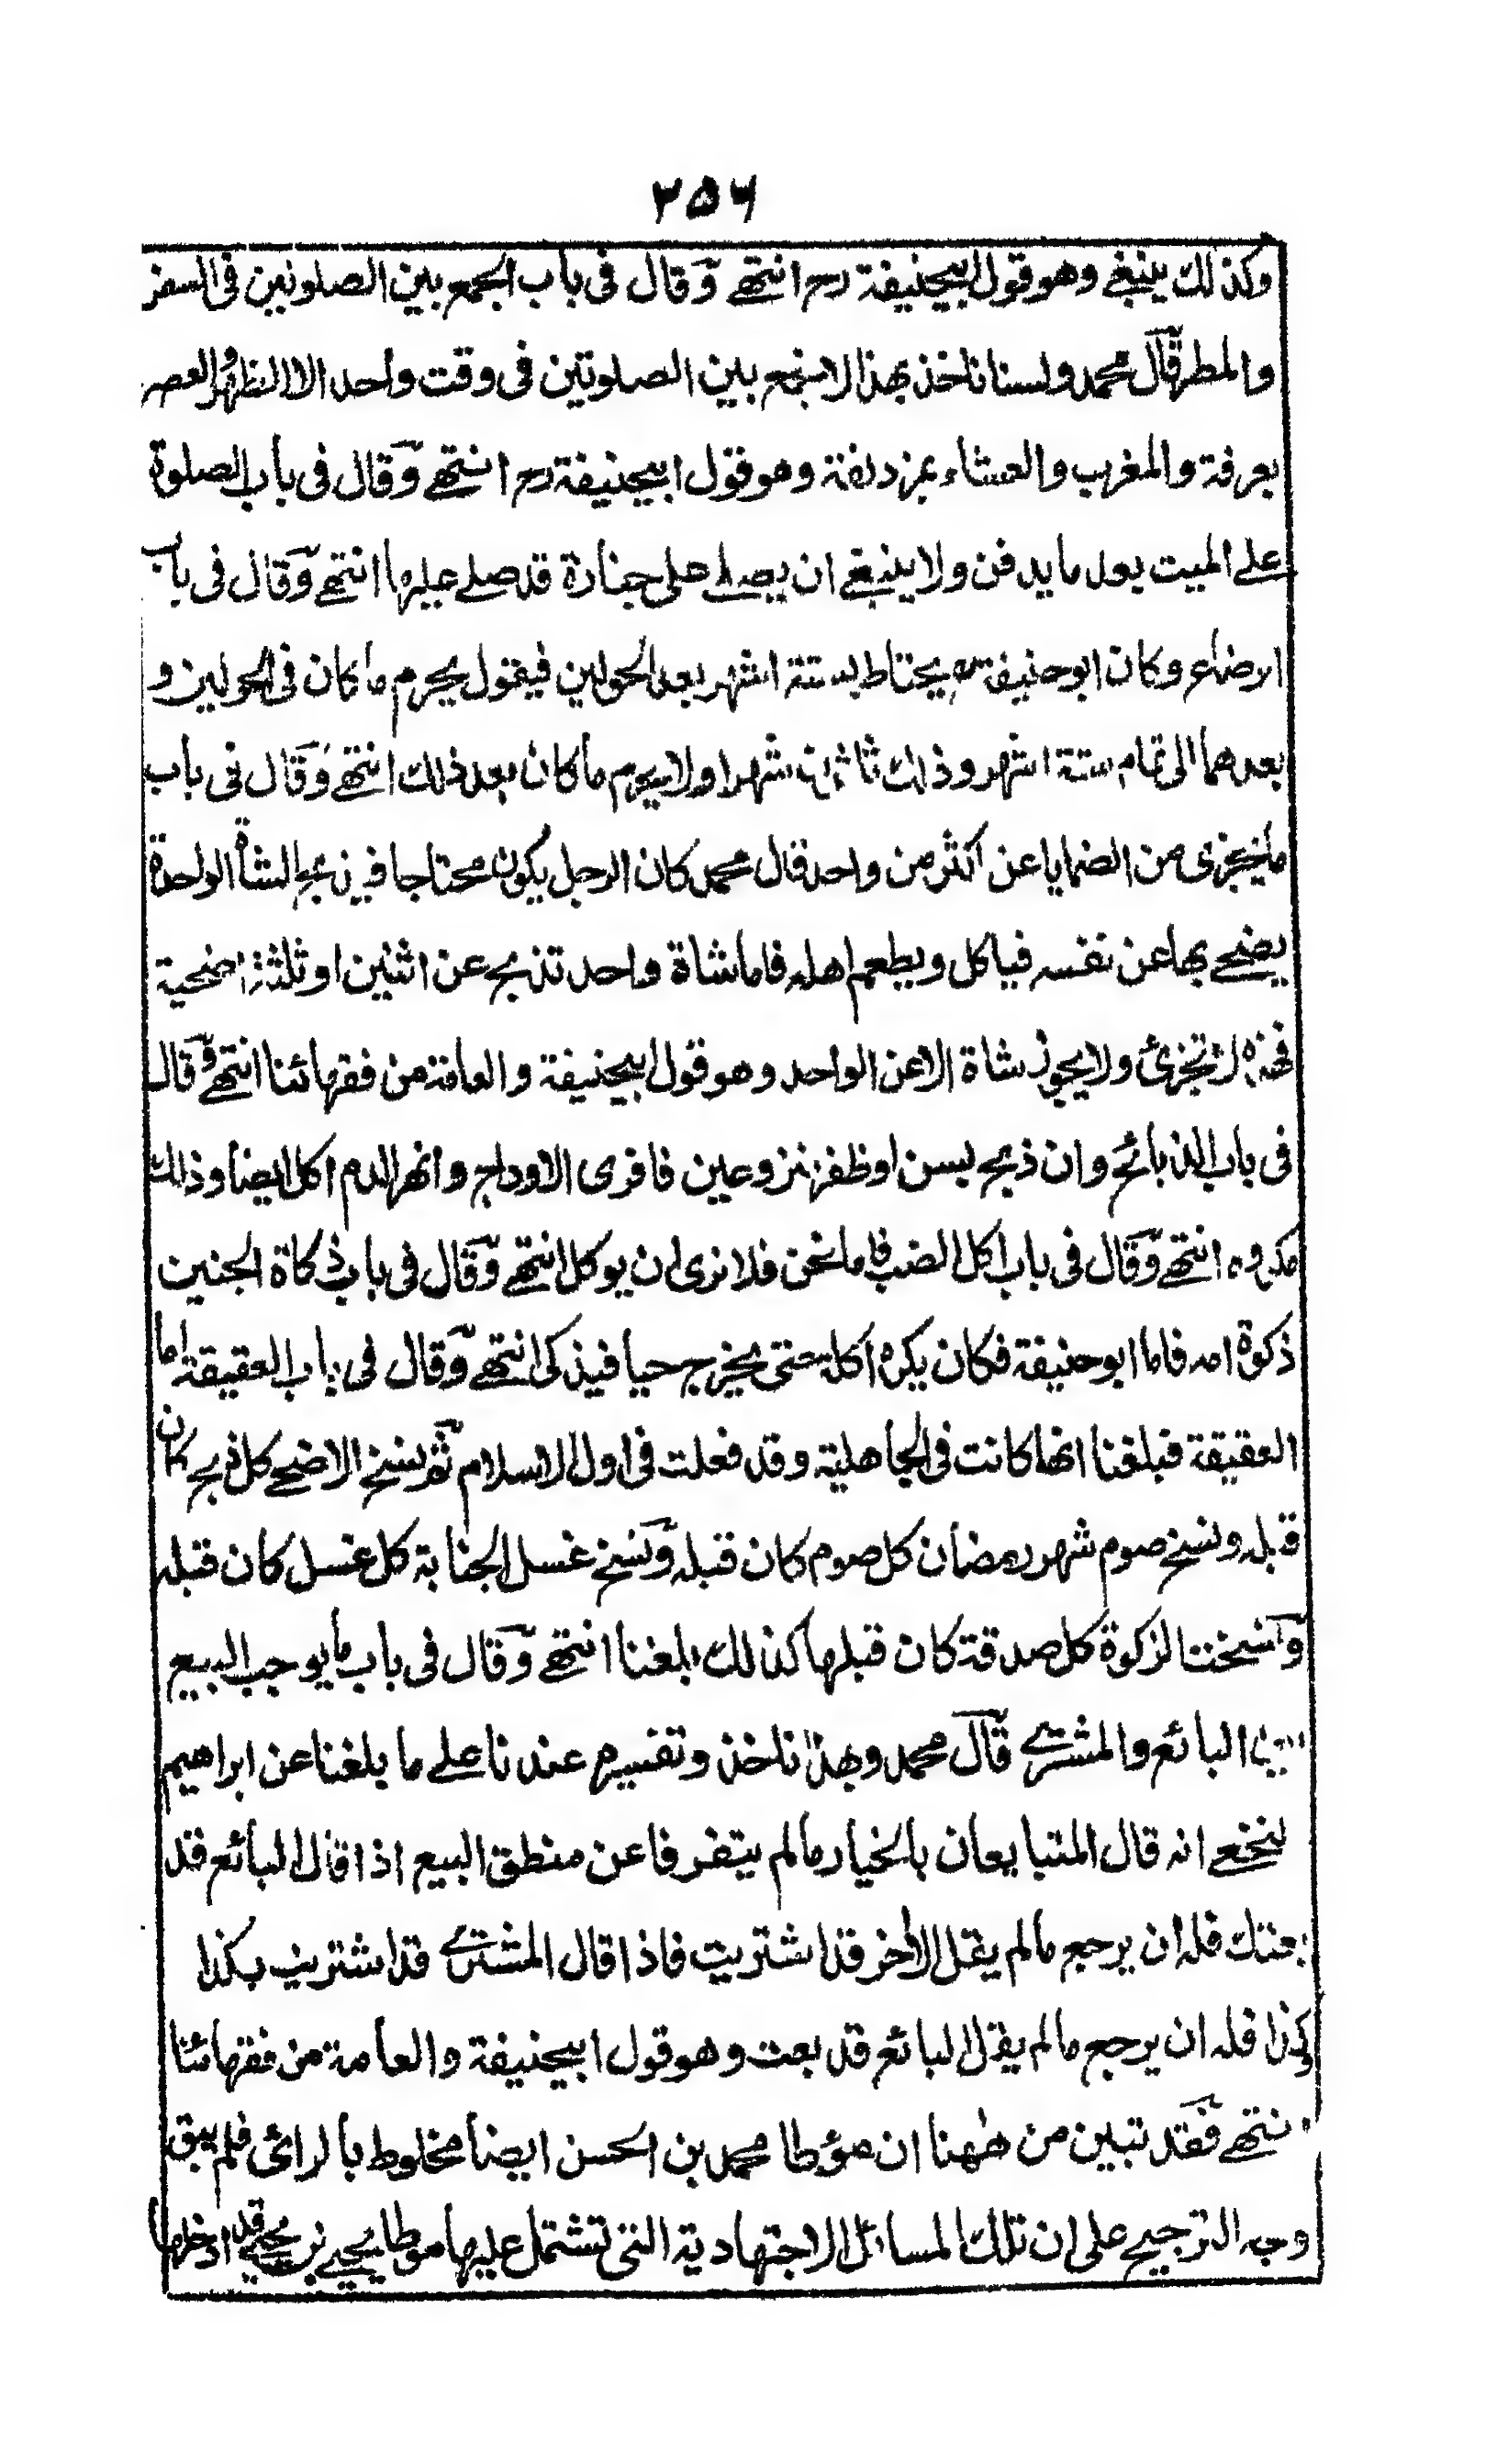 ۲۵۶
وكذلك ينبغے وهو قول ابيحنيفة رح انتهے وقال فى باب الجمع بين الصلوتين فى السفر
والمطر قال محمد ولسنا ناخذ بهذا لا نجمع بين الصلوتين فى وقت واحد الا الظهر والعصر
بعرفة والمغرب والعشاء بمزدلفة وهو قول ابيحنيفة رح انتهے وقال فى باب الصلوة
علے الميت بعد ما يدفن ولا ينبغے ان يصلے على جنازة قد صلے عليها انتهے وقال فى باب
الرضاع وكان ابو حنيفة رح يحتاط بستة اشهر بعد الحولين فيقول يحرم ما كان فى الحولين و
بعدهما الى تمام ستة اشهر وذلك ثلثون شهرا ولا يحرم ما كان بعد ذلك انتهے وقال فى باب
ما يجزى من الضحايا عن اكثر من واحد قال محمد كان الرجل يكون محتاجا فيذبح الشاة الواحدة
يضحے بها عن نفسه فياكل ويطعم اهله فاما شاة واحد تذبح عن اثنين او ثلثة اضحية
فهذه لا تجزئ ولا يجوز شاة الا عن الواحد وهو قول ابيحنيفة والعامة من فقهائنا انتهے وقال
فى باب الذبائح وان ذبح بسن او ظفر منزوعين فافرى الاوداج وانهر الدم اكل ايضا وذلك
مكروه انتهے وقال فى باب اكل الضب فاما نحن فلا نرى ان يوكل انتهے وقال فى باب ذكاة الجنين
ذكوة امه فاما ابو حنيفة فكان يكره اكله حتى يخرج حيا فيذكى انتهے وقال فى باب العقيقة اما
العقيقة فبلغنا انها كانت فى الجاهلية وقد فعلت فى اول الاسلام ثم نسخ الاضحے كل ذبح كان
قبله ونسخ صوم شهر رمضان كل صوم كان قبله ونسخ غسل الجنابة كل غسل كان قبله
ونسخت الزكوة كل صدقة كان قبلها كذلك بلغنا انتهے وقال فى باب ما يوجب البيع
بين البائع والمشترے قال محمد وبهذا ناخذ وتفسيره عندنا علے ما بلغنا عن ابراهيم
لنخعے انه قال المتبايعان بالخيار ما لم يتفرقا عن منطق البيع اذا قال البائع قد
بعتك فله ان يرجع ما لم يقل الاخر قد اشتريت فاذا قال المشترے قد اشتريت بكذا
كذا فله ان يرجع ما لم يقل البائع قد بعت وهو قول ابيحنيفة والعامة من فقهائنا
انتهے فقد تبين من ههنا ان مؤطا محمد بن الحسن ايضا مخلوط بالرائى فلم يبق
وجه الترجيح على ان تلك المسائل الاجتهادية التى تشتمل عليها موطا يحيے بن يحيے قد ادخلها